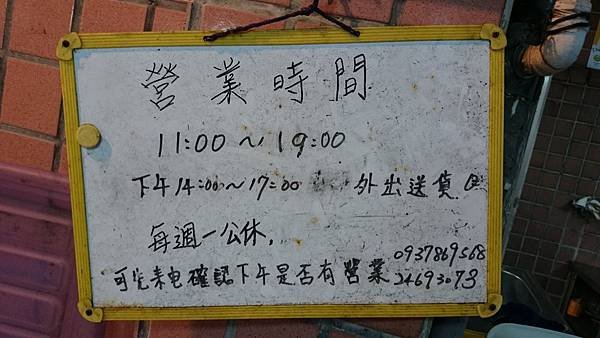 營業時間
11:00～19:00
下午14:00～17:00 外出送貨
每週一公休,
可先来电確認下午是否有營業
0937869568
24693073